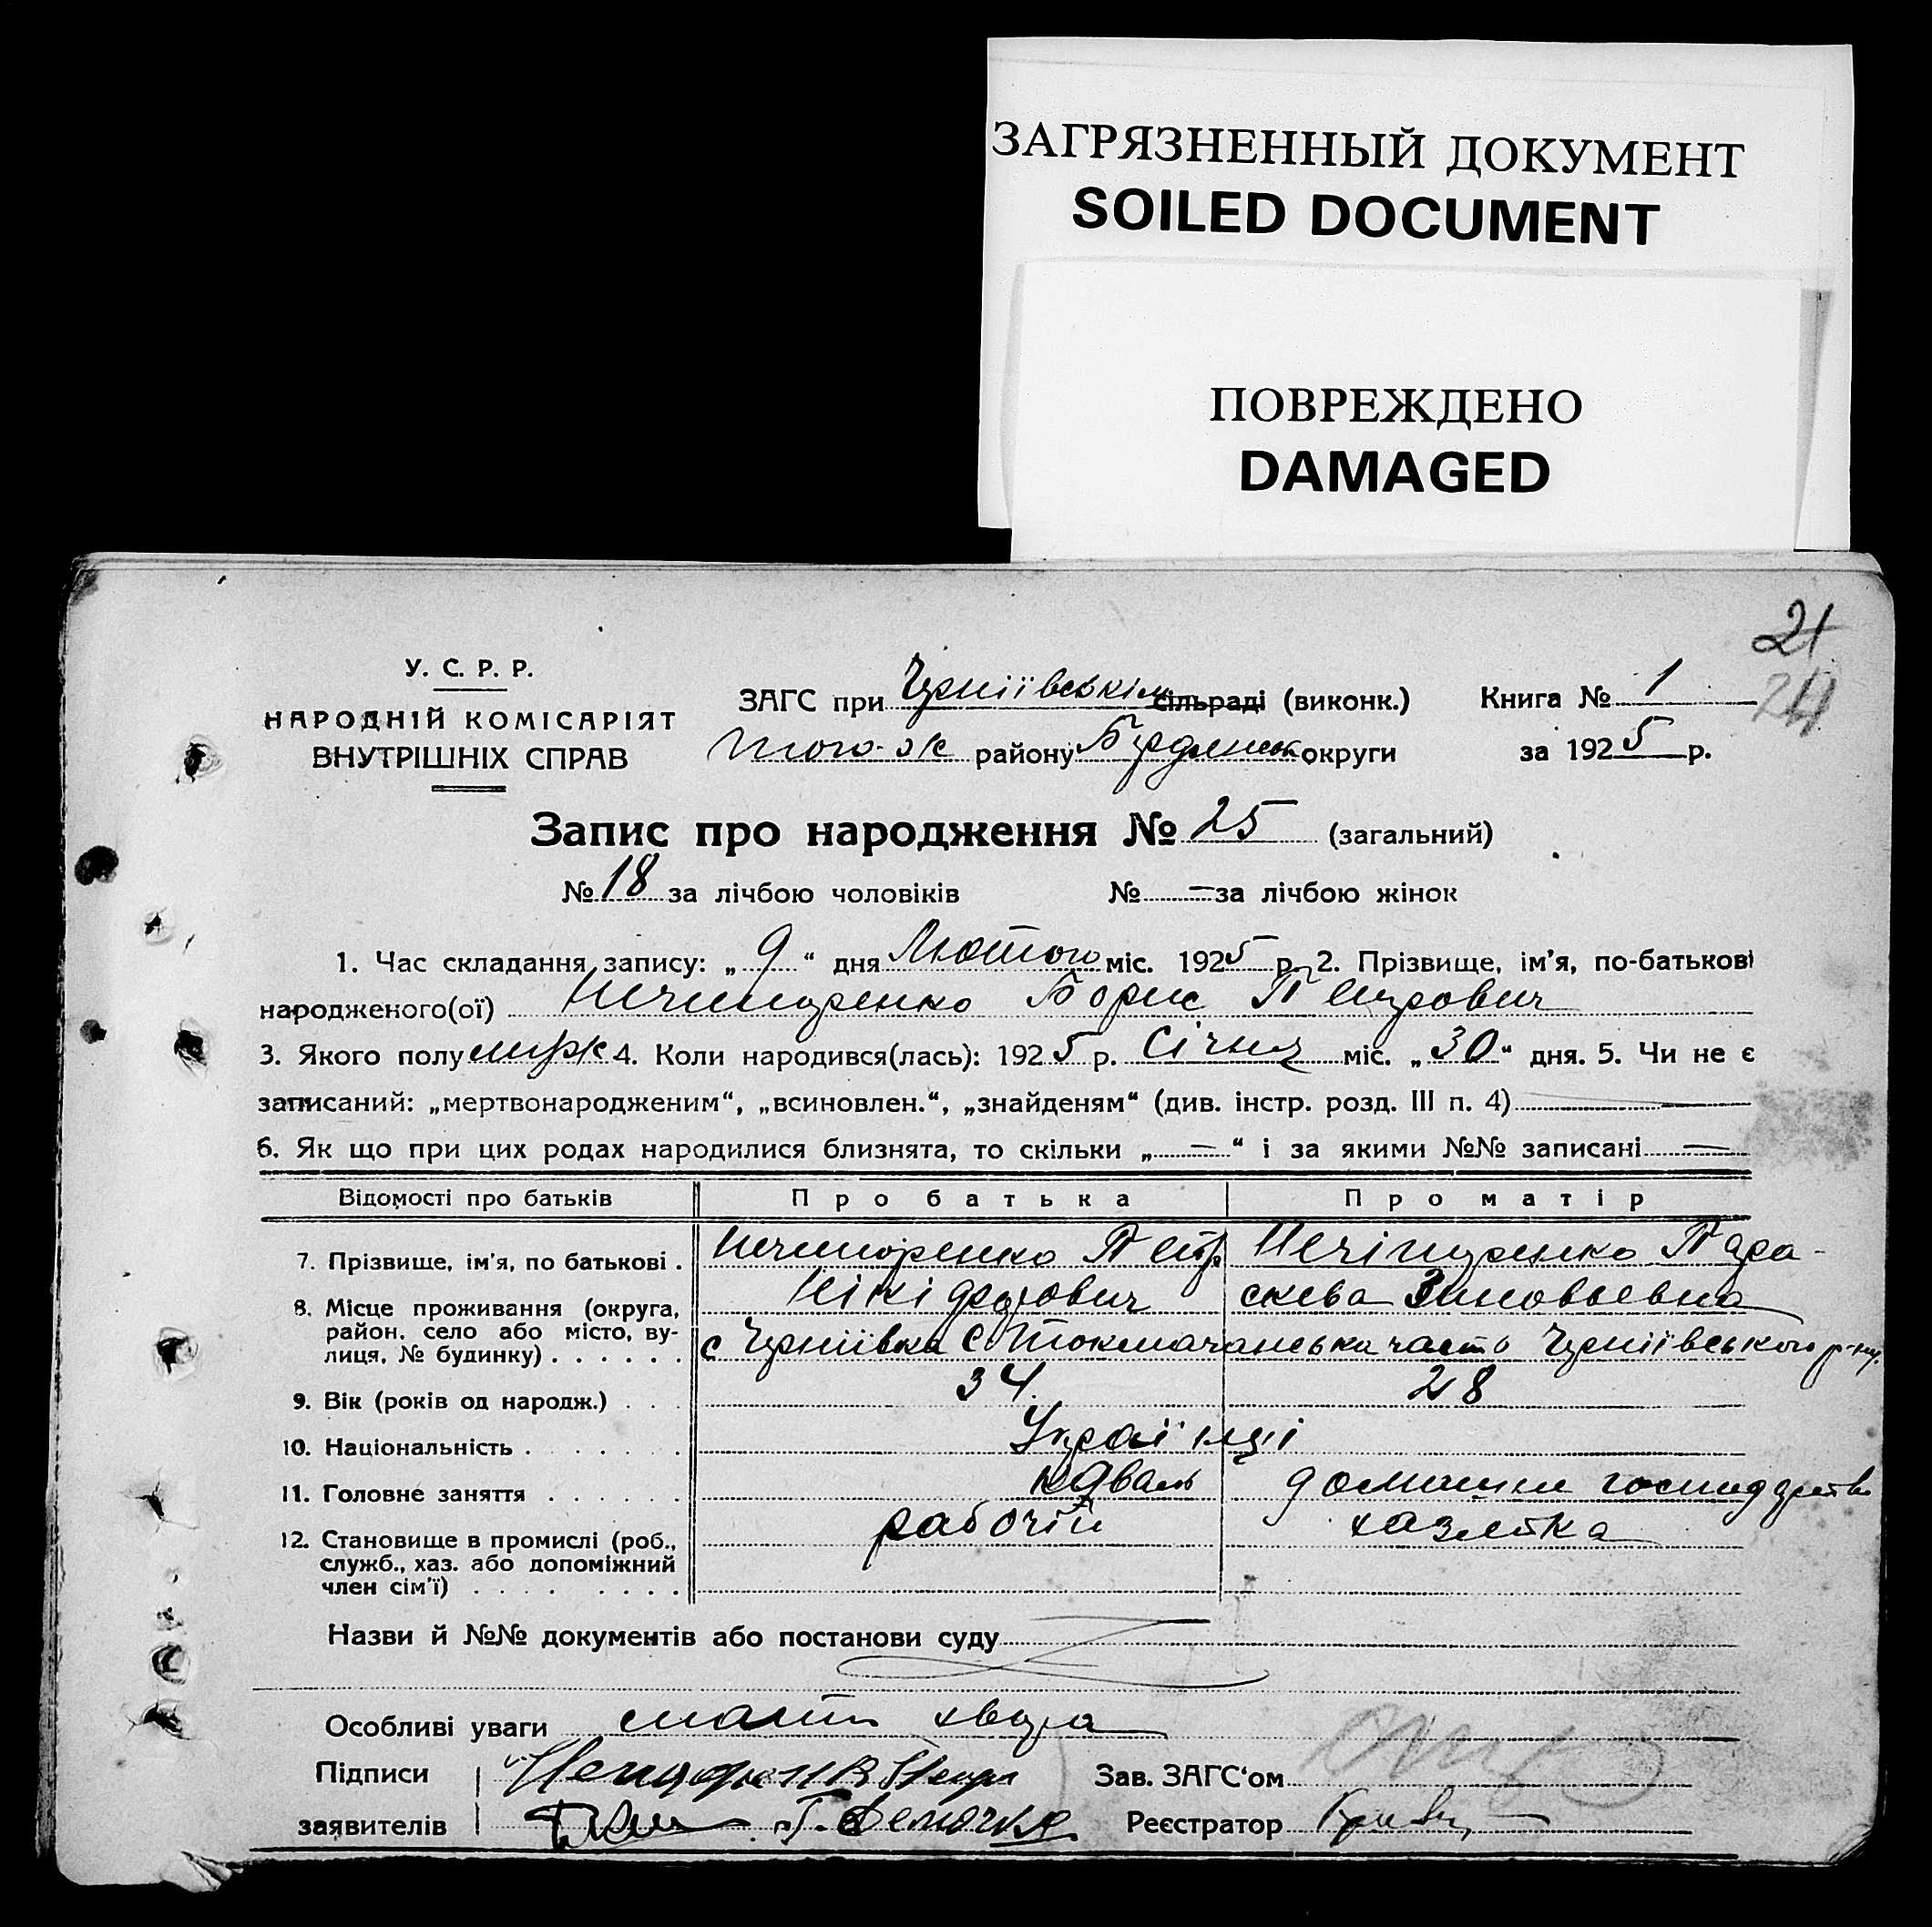 ЗАГРЯЗНЕННЫЙ ДОКУМЕНТ
SOILED DOCUMENT
ПОВРЕЖДЕНО
DAMAGED
21
24
У. С. Р. Р.
НАРОДНІЙ КОМІСАРІЯТ
ВНУТРІШНІХ СПРАВ
ЗАГС при Черніївськім сільраді (виконк.) Книга № 1
того-ж району Бердянськ округи за 1925 р.
Запис про народження № 25 (загальний)
№ 18 за лічбою чоловіків № — за лічбою жінок
1. Час складання запису: „9“ дня Лютого міс. 1925 р. 2. Прізвище, ім'я, по-батькові
народженого(ої) Нечипуренко Борис Петрович
3. Якого полу 4. Коли народився(лась): 1925 р. Січня міс. „30“ дня. 5. Чи не є
записаний: „мертвонародженим“, „всиновлен.“, „знайденям“ (див. інстр. розд. III п. 4) —
6. Як що при цих родах народилися близнята, то скільки „—“ і за якими №№ записані —
Відомості про батьків Про батька Про матір
7. Прізвище, ім'я, по батькові . Нечипоренко Петр Нечіпуренко Пара-
Нікіфорович скева Зиновьевна
8. Місце проживання (округа,
район. село або місто, ву-
лиця, № будинку) . . . . . . с Черніївка С Токмачанська часть Черніївського р-ну.
9. Вік (років од народж.) . . . 34 28
10. Національність . . . . . . Українці
11. Головне заняття . . . . . . коваль домашне господарство
12. Становище в промислі (роб.,
служб., хаз. або допоміжний
член сім'ї) . . . . . . . . рабочій хазяйка
Назви й №№ документів або постанови суду
Особливі уваги мати хвора
Підписи Зав. ЗАГС'ом
заявителів Реєстратор